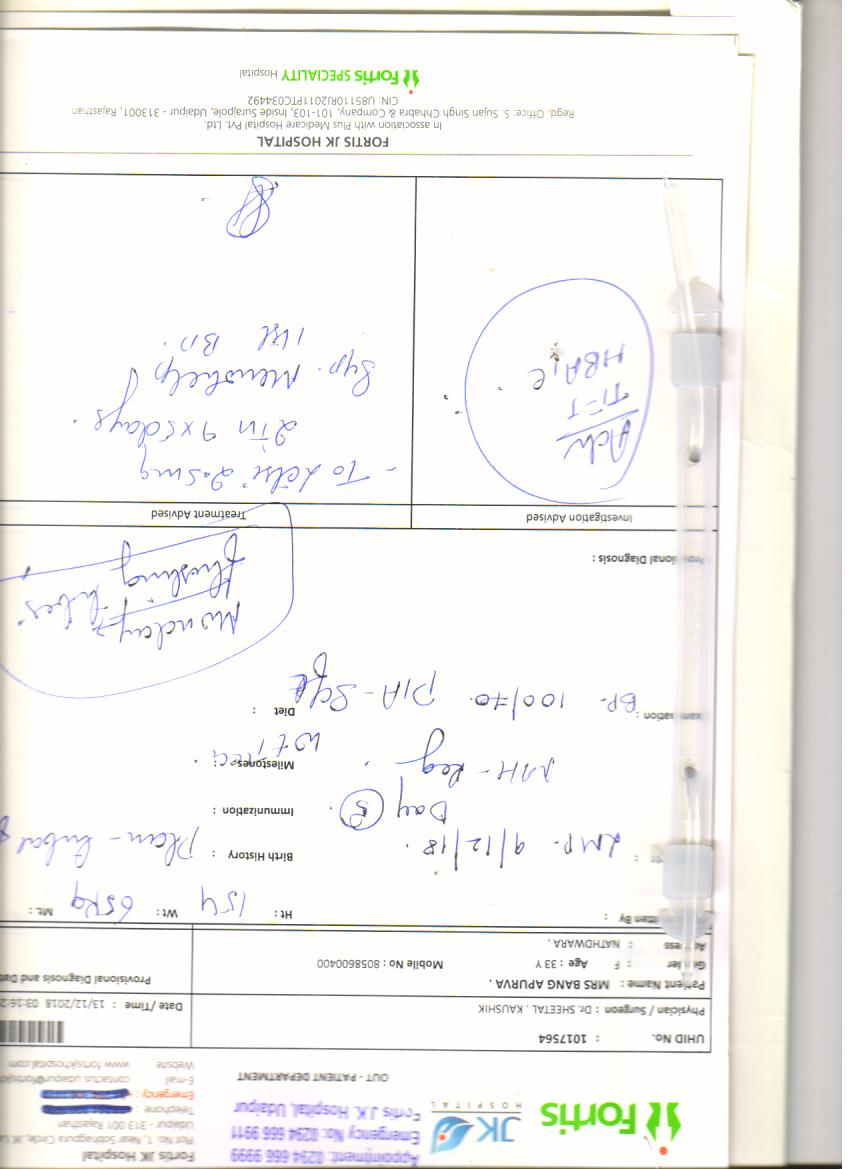 Fortis
JK
HOSPITAL
Appointment: 0294 666 9999
Emergency No: 0294 666 9911
Fortis J.K. Hospital, Udaipur
OUT - PATIENT DEPARTMENT
Fortis JK Hospital
Plot No. 1, Near Sobhagpura Circle, JK
Udaipur - 313 001 Rajasthan
Telephone :
Emergency :
E-mail : contactus.udaipur@fortisjk
Website : www.fortisjkhospital.com
UHID No. : 1017564
Physician / Surgeon : Dr. SHEETAL . KAUSHIK
Date /Time : 13/12/2018 03:16:2
Patient Name : MRS BANG APURVA .
Gender : F Age : 33 Y Mobile No : 8058600400
Address : NATHDWARA .
Provisional Diagnosis and Dat
Ht : 154 Wt : 65kg Mt. :
LMP- 9/12/18.
Birth History : Plan - tubal
Day 5.
Immunization :
MH - Reg
Milestones :
Examination :
BP- 100/70. P/A - Soft
Diet :
Monday
tubes
flushing
Provisional Diagnosis :
Investigation Advised
Treatment Advised
Adv
TFT
HBA1c
- To Letsi 2.5mg
2 in 9 x 5 days
Syp. Menohelp
1 tsf BD.
FORTIS JK HOSPITAL
In association with Plus Medicare Hospital Pvt. Ltd.
Regd. Office: S. Sujan Singh Chhabra & Company, 101-103, Inside Surajpole, Udaipur - 313001, Rajasthan
CIN: U85110RJ2011PTC034492
Fortis SPECIALITY Hospital